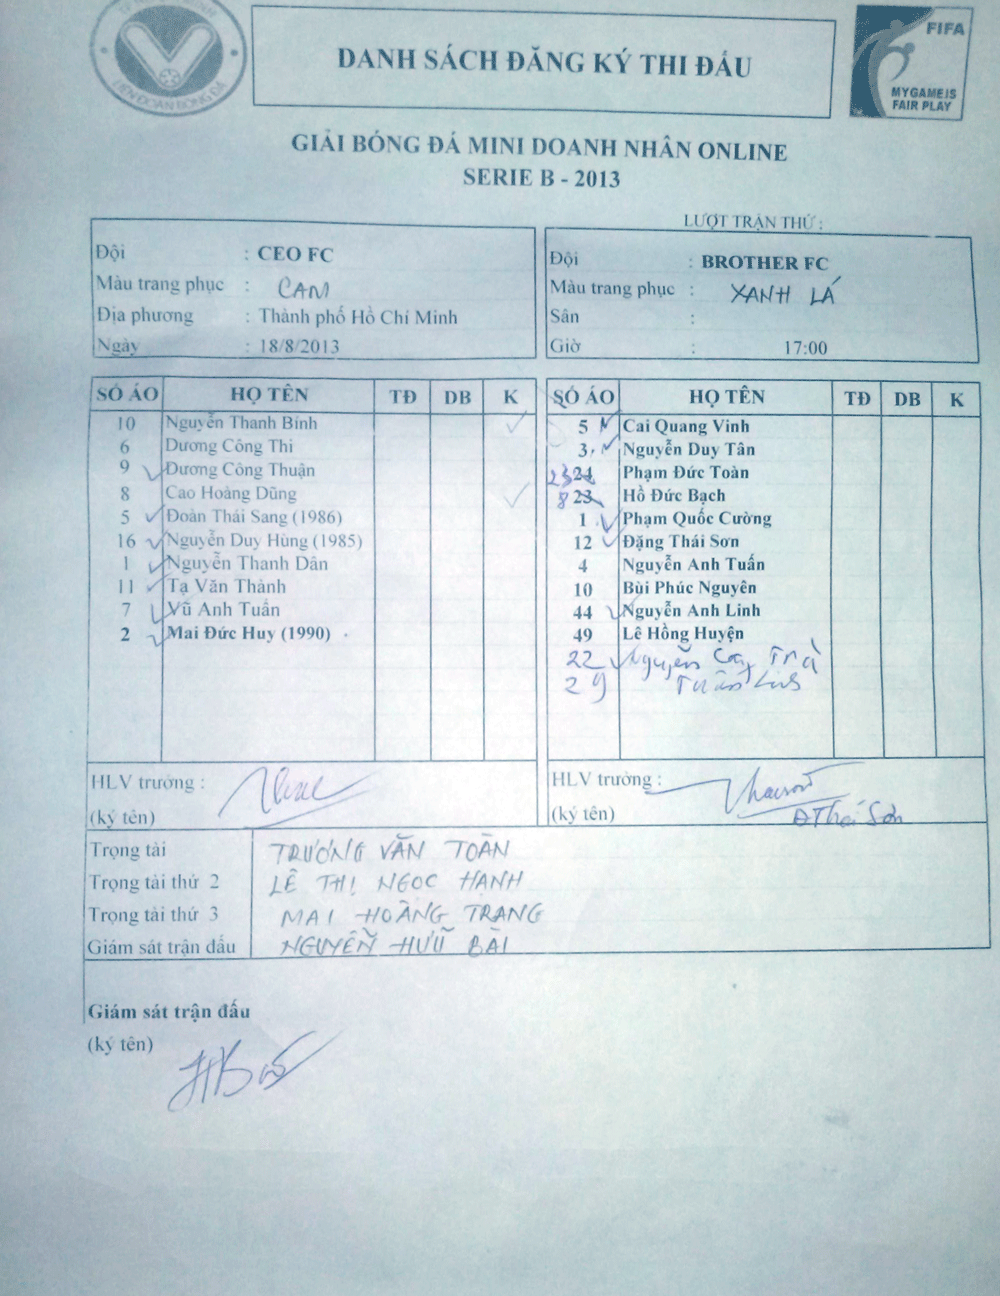 LIÊN ĐOÀN BÓNG ĐÁ
DANH SÁCH ĐĂNG KÝ THI ĐẤU
FIFA
MY GAME IS
FAIR PLAY
GIẢI BÓNG ĐÁ MINI DOANH NHÂN ONLINE
SERIE B - 2013
LƯỢT TRẬN THỨ :
Đội : CEO FC
Màu trang phục : CAM
Địa phương : Thành phố Hồ Chí Minh
Ngày : 18/8/2013
Đội : BROTHER FC
Màu trang phục : XANH LÁ
Sân :
Giờ : 17:00
SỐ ÁO HỌ TÊN TĐ DB K
10 Nguyễn Thanh Bính
6 Dương Công Thi
9 Dương Công Thuận
8 Cao Hoàng Dũng
5 Đoàn Thái Sang (1986)
16 Nguyễn Duy Hùng (1985)
1 Nguyễn Thanh Dân
11 Tạ Văn Thành
7 Vũ Anh Tuấn
2 Mai Đức Huy (1990)
SỐ ÁO HỌ TÊN TĐ DB K
5 Cai Quang Vinh
3 Nguyễn Duy Tân
23 24 Phạm Đức Toàn
8 23 Hồ Đức Bạch
1 Phạm Quốc Cường
12 Đặng Thái Sơn
4 Nguyễn Anh Tuấn
10 Bùi Phúc Nguyên
44 Nguyễn Anh Linh
49 Lê Hồng Huyện
22 Nguyễn Trà
29 Tuấn Linh
HLV trưởng :
(ký tên)
HLV trưởng :
(ký tên) Đ Thái Sơn
Trọng tài TRƯƠNG VĂN TOÀN
Trọng tài thứ 2 LÊ THỊ NGỌC HẠNH
Trọng tài thứ 3 MAI HOÀNG TRANG
Giám sát trận đấu NGUYỄN HỮU BÀI
Giám sát trận đấu
(ký tên)